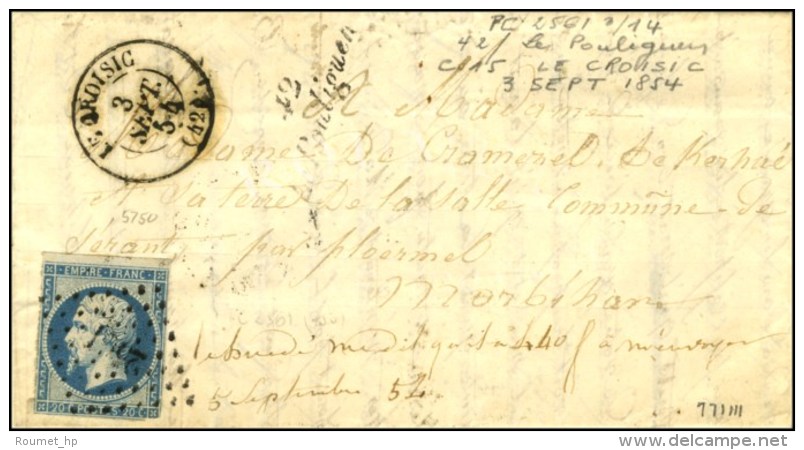 PC 2561 2/14
42/ Le Pouliguen
C 15 LE CROISIC
3 SEPT 1854
LE CROISIC
3
SEPT.
54
(42)
42
Pouliguen
A Madame
Madame De Cramezel, De Kerhué
et Sa terre De la Salle Commune de
5750
Sérant par ploërmel
Morbihan
EMPIRE FRANC
20 C POSTES 20 C
PC 2561
5 Septembre 54
771111
Roumet_hp
www.delcampe.net